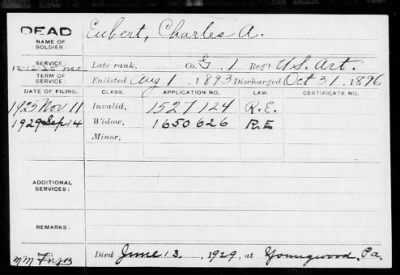 DEAD
NAME OF SOLDIER:
Eubert, Charles A.
SERVICE:
Late rank, Co. G. 1 Reg't U.S. Art.
TERM OF SERVICE:
Enlisted Aug 1 1893 Discharged Oct 31, 1896
DATE OF FILING. CLASS. APPLICATION NO. LAW. CERTIFICATE NO.
1925 Nov 11 Invalid, 1527124 R.E.
1929 Sep 14 Widow, 1650626 R.E
Minor,
ADDITIONAL SERVICES:
REMARKS:
Died June 13, 1929, at Youngwood, Pa.